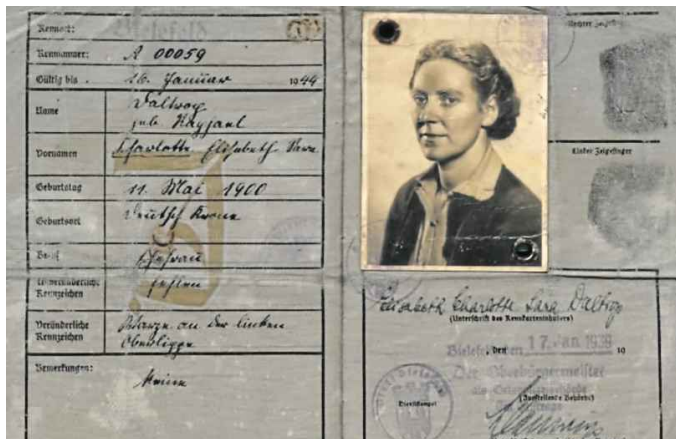 Kennort: Bielefeld
Kennnummer: A 00059
Gültig bis 16. Januar 1944
Name
geb.
Vornamen Charlotte Elisabeth Sara
Geburtstag 11. Mai 1900
Geburtsort Deutsch Krone
Beruf Ehefrau
Unveränderliche
Kennzeichen fehlen
Veränderliche
Kennzeichen Warze an der linken
Oberlippe
Bemerkungen: Keine
Rechter Zeigefinger
Linker Zeigefinger
Elisabeth Charlotte Sara
(Unterschrift des Kennkarteninhabers)
Bielefeld, den 17. Jan. 1939 19
Der Oberbürgermeister
als Ortspolizeibehörde
(Ausstellende Behörde)
Dienststempel